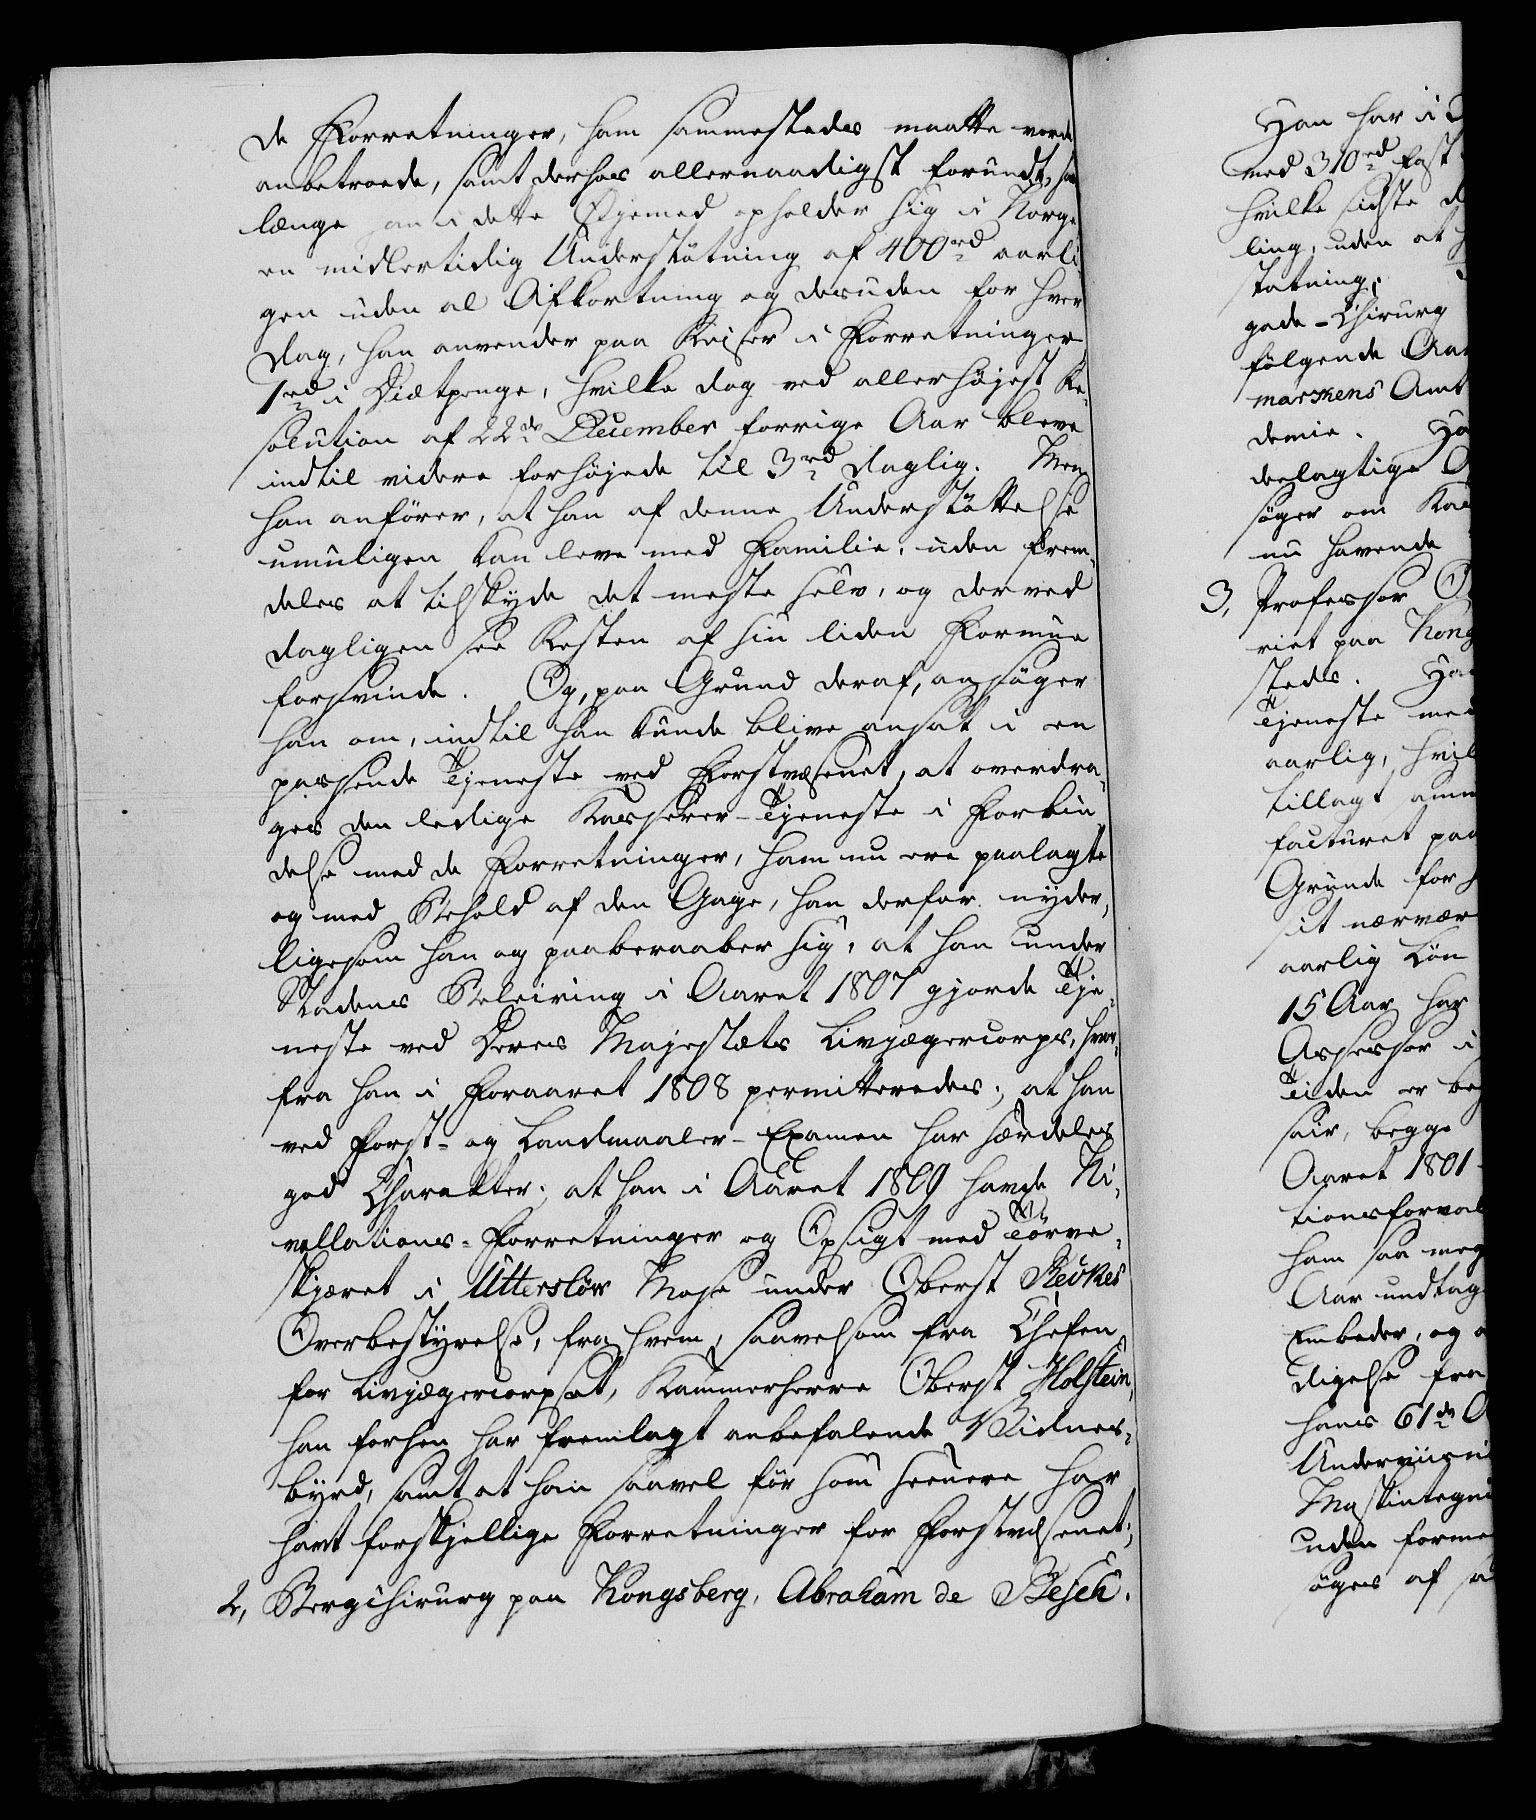 de Forretninger, ham sammestedes maatte vorde
anbetroede, samt derhos allernaadigst forundt, saa
længe han i dette Øjemed opholder sig i Norge
en midlertidig Understøtning af 400 rd aarli-
gen uden al Afkortning og desuden for hver
Dag, han anvender paa Reiser i Forretninger
1 rd i Diætpenge, hvilke dog ved allerhøjest Re-
solution af 22de December forrige Aar bleve
indtil videre forhøjede til 3 rd daglig. Men
han anfører, at han af denne Understøttelse
umuligen kan leve med Familie, uden frem-
deles at tilskyde det meste selv, og derved
dagligen see Resten af sin liden Formue
forsvinde. Og, paa Grund deraf, ansøger
han om, indtil han kunde blive ansat i en
passende Tjeneste ved Forstvæsenet, at overdra-
ges den ledige Kasserer-Tjeneste i Forbin-
delse med de Forretninger, ham nu ere paalagte
og med Behold af den Gage, han derfor nyder,
ligesom han og paaberaaber sig, at han under
Stadens Beleiring i Aaret 1807 gjorde Tje-
neste ved Deres Majestæts Livjægercorps, hvor-
fra han i Foraaret 1808 permitteredes; at han
ved Forst- og Landmaaler-Examen har særdeles
god Charakter; at han i Aaret 1809 havde Ni-
vellations-Forretninger og Opsigt med Tørve-
skjæret i Utterslöv Mose under Oberst Revkes
Overbestyrelse, fra hvem, saavelsom fra Chefen
for Livjægercorpset, Kammerherre Oberst Holstein,
han forhen har fremlagt anbefalende Vidnes-
byrd, samt at han saavel før som seenere har
havt forskjellige Forretninger for Forstvæsenet;
2, Bergchirurg paa Kongsberg, Abraham de Besch.
Han har i
med 310 rd fast
hvilke sidste
ling, uden at
statning,
gade-Chirurg
følgende Aar
markens Amt
demie. Ha
deelagtige
søger om
nu havende
3, Professor
riet paa Kong
stedes. Ha
Tjeneste med
aarlig, hvil
tillagt
facturet paa
Grunde for
sit nærvær
aarlig Løn
15 Aar har
Assessor i
Tiden er be
soir, begge
Aaret 1801
tionsforval
ham saa meg
Aar undtag
Embeder, og
digelse fra
hans 61de
Underviisni
Maskintegni
uden forme
øges af